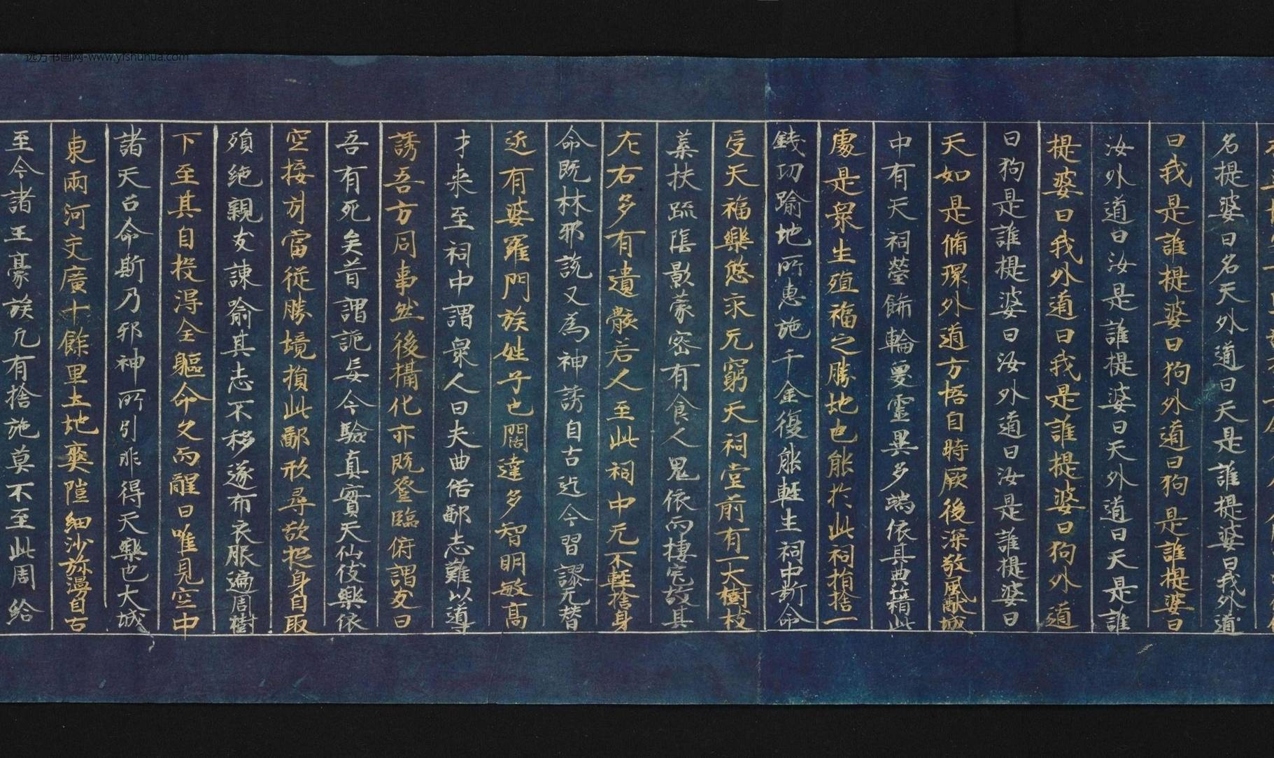 名提婆曰名天外道曰天是誰提婆曰我外道
曰我是誰提婆曰狗外道曰狗是誰提婆曰
汝外道曰汝是誰提婆曰天外道曰天是誰
提婆曰我外道曰我是誰提婆曰狗外道
曰狗是誰提婆曰汝外道曰汝是誰提婆曰
天如是脩環外道方悟自時厥後深敬風猷城
中有天祠瑩飾輪奐靈異多端依其典籍此
處是衆生殖福之勝地也能於此祠捐捨一
錢功踰地所惠施千金復能輕生祠中斷命
受天福樂悠永无窮天祠堂前有一大樹枝
葉扶疏蔭影蒙密有食人鬼依而棲宅故其
左右多有遺骸若人至此祠中无不輕捨身
命既怵邪說又為神誘自古迄今習謬无替
近有婆羅門族姓子也闊達多智明敏高
才来至祠中謂衆人曰夫曲俗鄙志難以導
誘吾方同事然後攝化亦既登臨俯謂友曰
吾有死矣昔謂詭妄今驗真實天仙伎樂依
空接引當從勝境損此鄙形尋欲投身自取
殞絶親友諫喻其志不移遂布衣服遍周樹
下至其自投得全軀命久而醒曰唯見空中
諸天召命斯乃邪神所引非得天樂也大城
東兩河交廣十餘里土地爽塏細沙弥漫自古
至今諸王豪族凡有捨施莫不至此周給
远方书画网-www.yishuhua.com